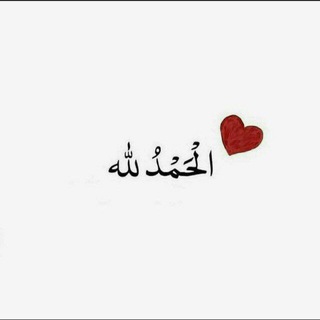 الْحَمْدُ لله